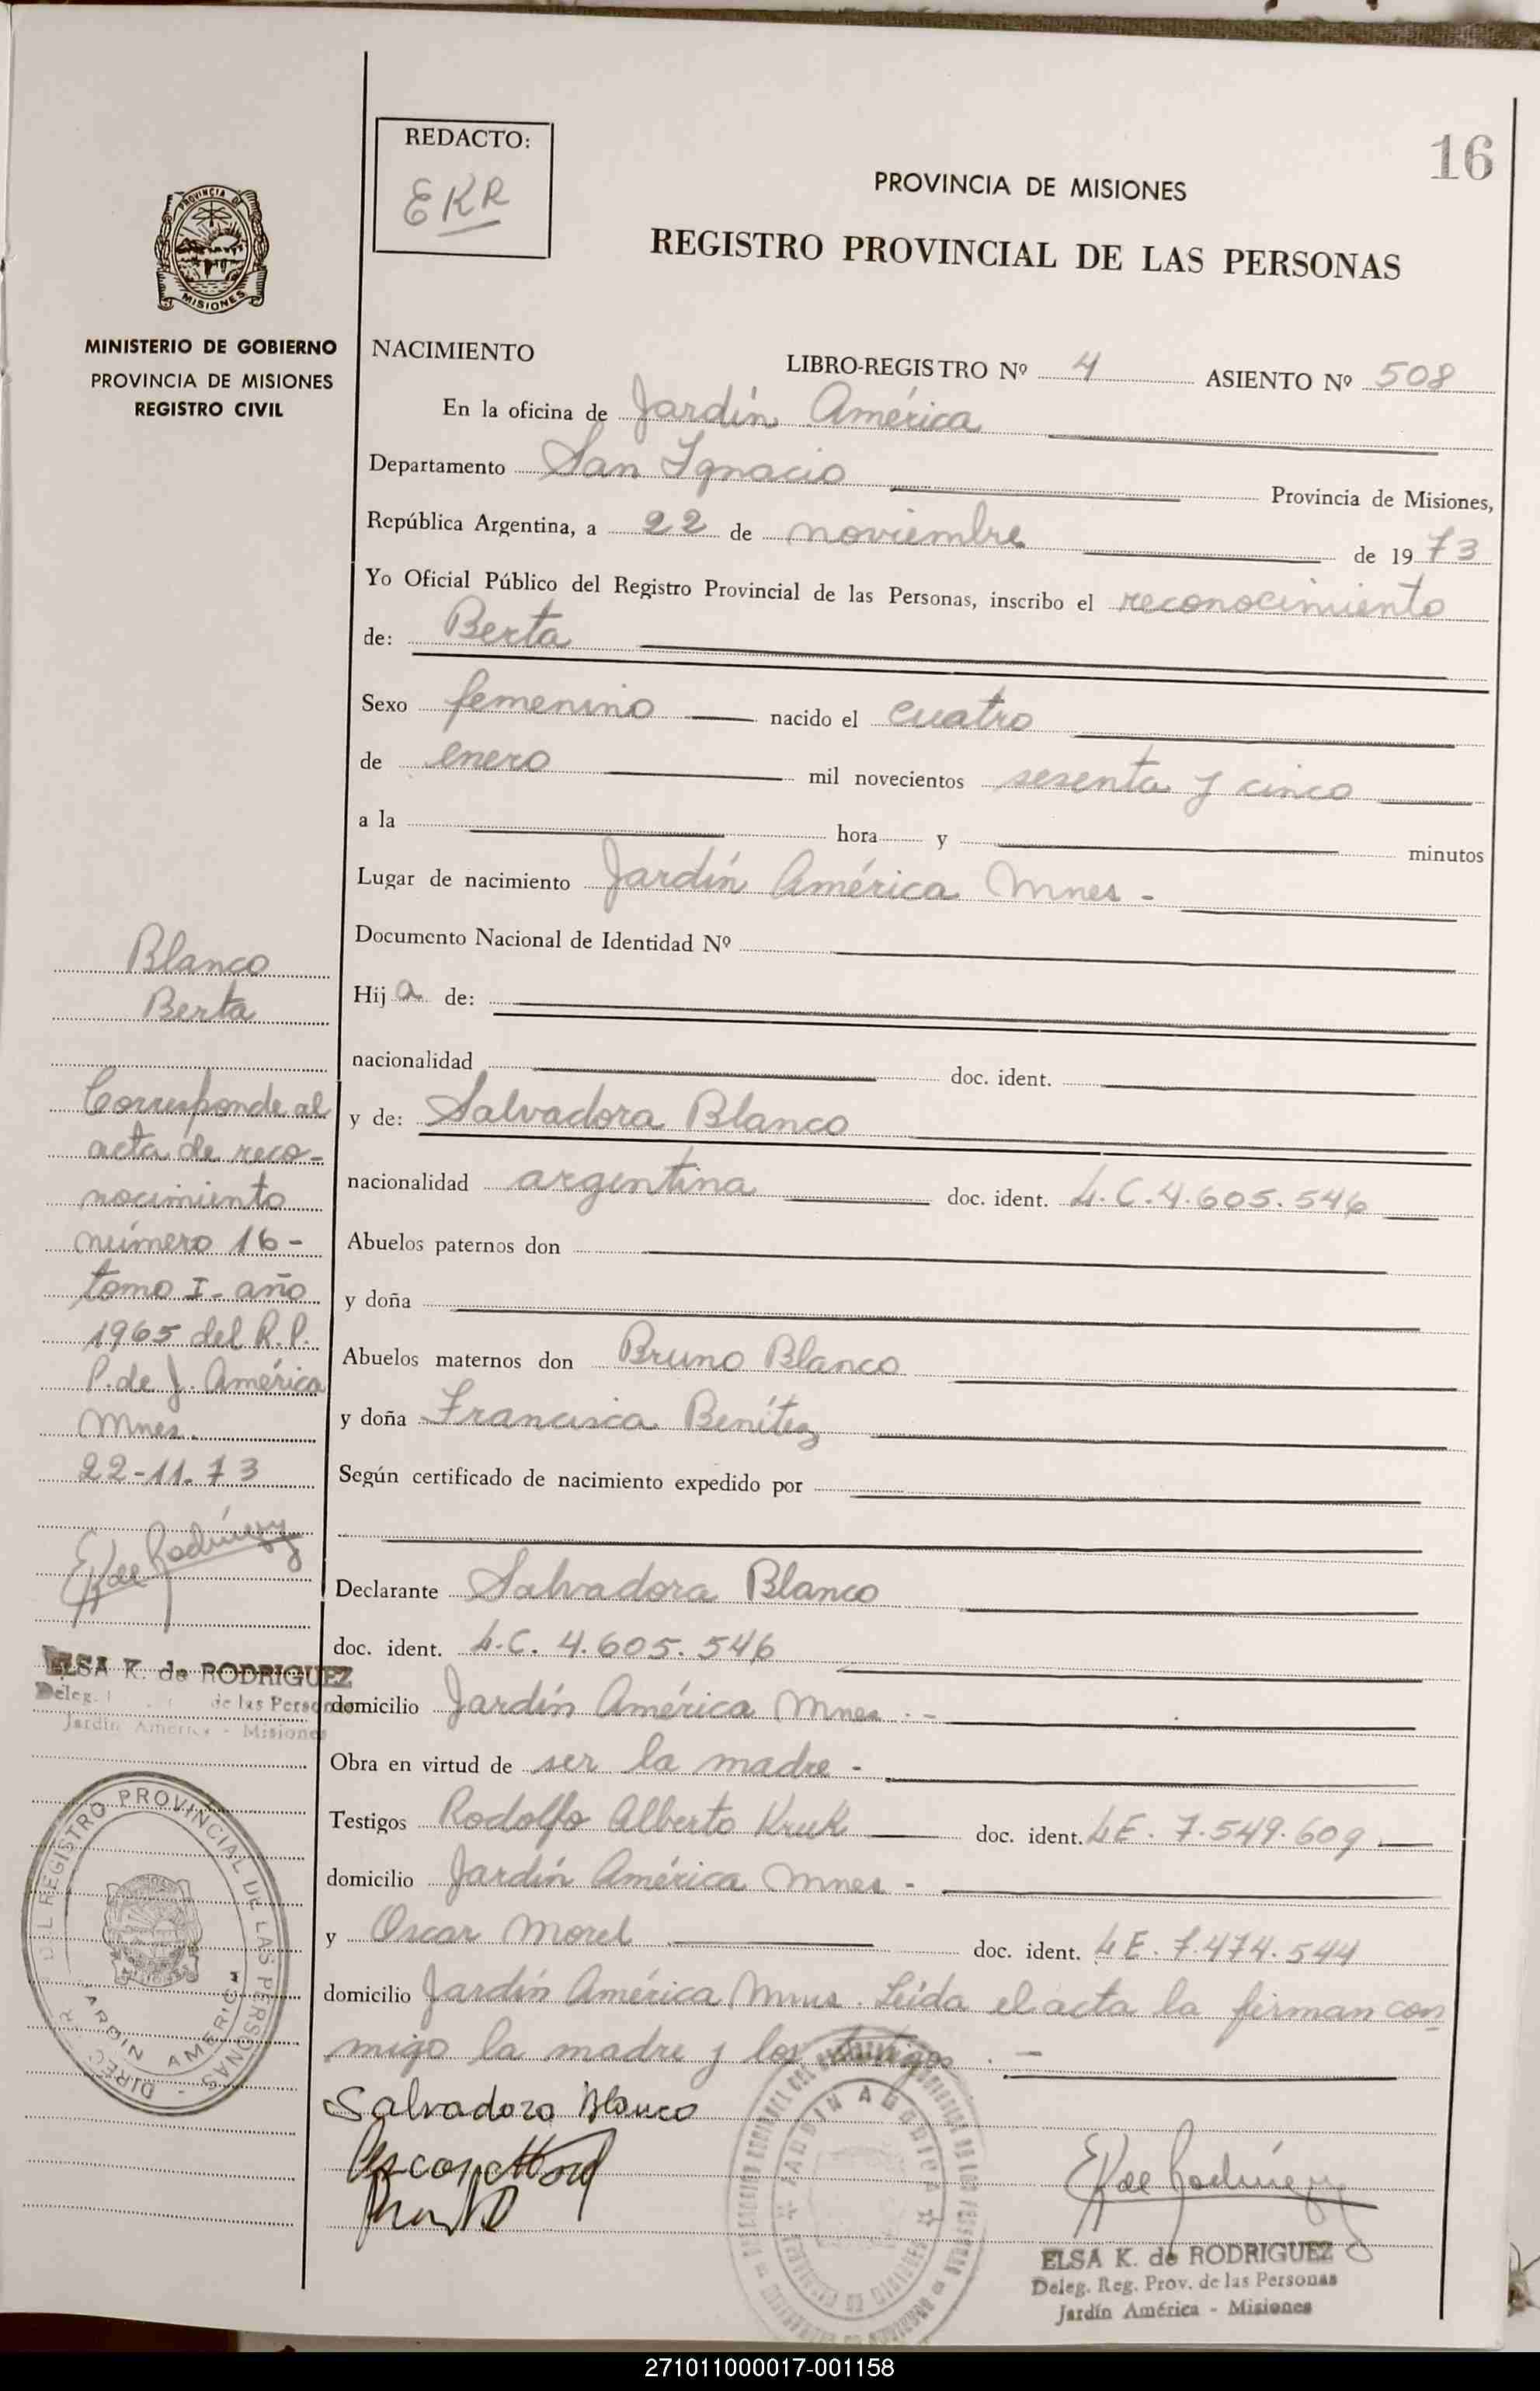 16
REDACTO:
EKR
PROVINCIA DE MISIONES
REGISTRO PROVINCIAL DE LAS PERSONAS
PROVINCIA DE
MISIONES
MINISTERIO DE GOBIERNO
PROVINCIA DE MISIONES
REGISTRO CIVIL
NACIMIENTO LIBRO-REGISTRO Nº 4 ASIENTO Nº 508
En la oficina de Jardín América
Departamento San Ignacio Provincia de Misiones,
República Argentina, a 22 de noviembre de 1973
Yo Oficial Público del Registro Provincial de las Personas, inscribo el reconocimiento
de: Berta
Sexo femenino nacido el cuatro
de enero mil novecientos sesenta y cinco
a la hora y minutos
Lugar de nacimiento Jardín América Mnes -
Documento Nacional de Identidad Nº
Hija de:
nacionalidad doc. ident.
y de: Salvadora Blanco
nacionalidad argentina doc. ident. L.C. 4.605.546
Abuelos paternos don
y doña
Abuelos maternos don Bruno Blanco
y doña Francisca Benítez
Según certificado de nacimiento expedido por
Declarante Salvadora Blanco
doc. ident. L.C. 4.605.546
domicilio Jardín América Mnes. -
Obra en virtud de ser la madre -
Testigos Rodolfo Alberto Kruk doc. ident. LE. 7.549.609
domicilio Jardín América Mnes -
y Oscar Morel doc. ident. LE. 7.474.544
domicilio Jardín América Mnes. Leída el acta la firman con
migo la madre y los testigos. -
Salvadora Blanco
EK de Rodríguez
ELSA K. de RODRIGUEZ
Deleg. Reg. Prov. de las Personas
Jardín América - Misiones
Blanco
Berta
Corresponde al
acta de reco-
nocimiento
número 16-
tomo I- año
1965 del R.P.
P. de J. América
Mnes.
22-11-73
EK de Rodríguez
ELSA K. de RODRIGUEZ
Deleg. de las Personas
Jardín América - Misiones
DIREC. DEL REGISTRO PROVINCIAL DE LAS PERSONAS
JARDIN AMERICA
JARDIN AMERICA
271011000017-001158